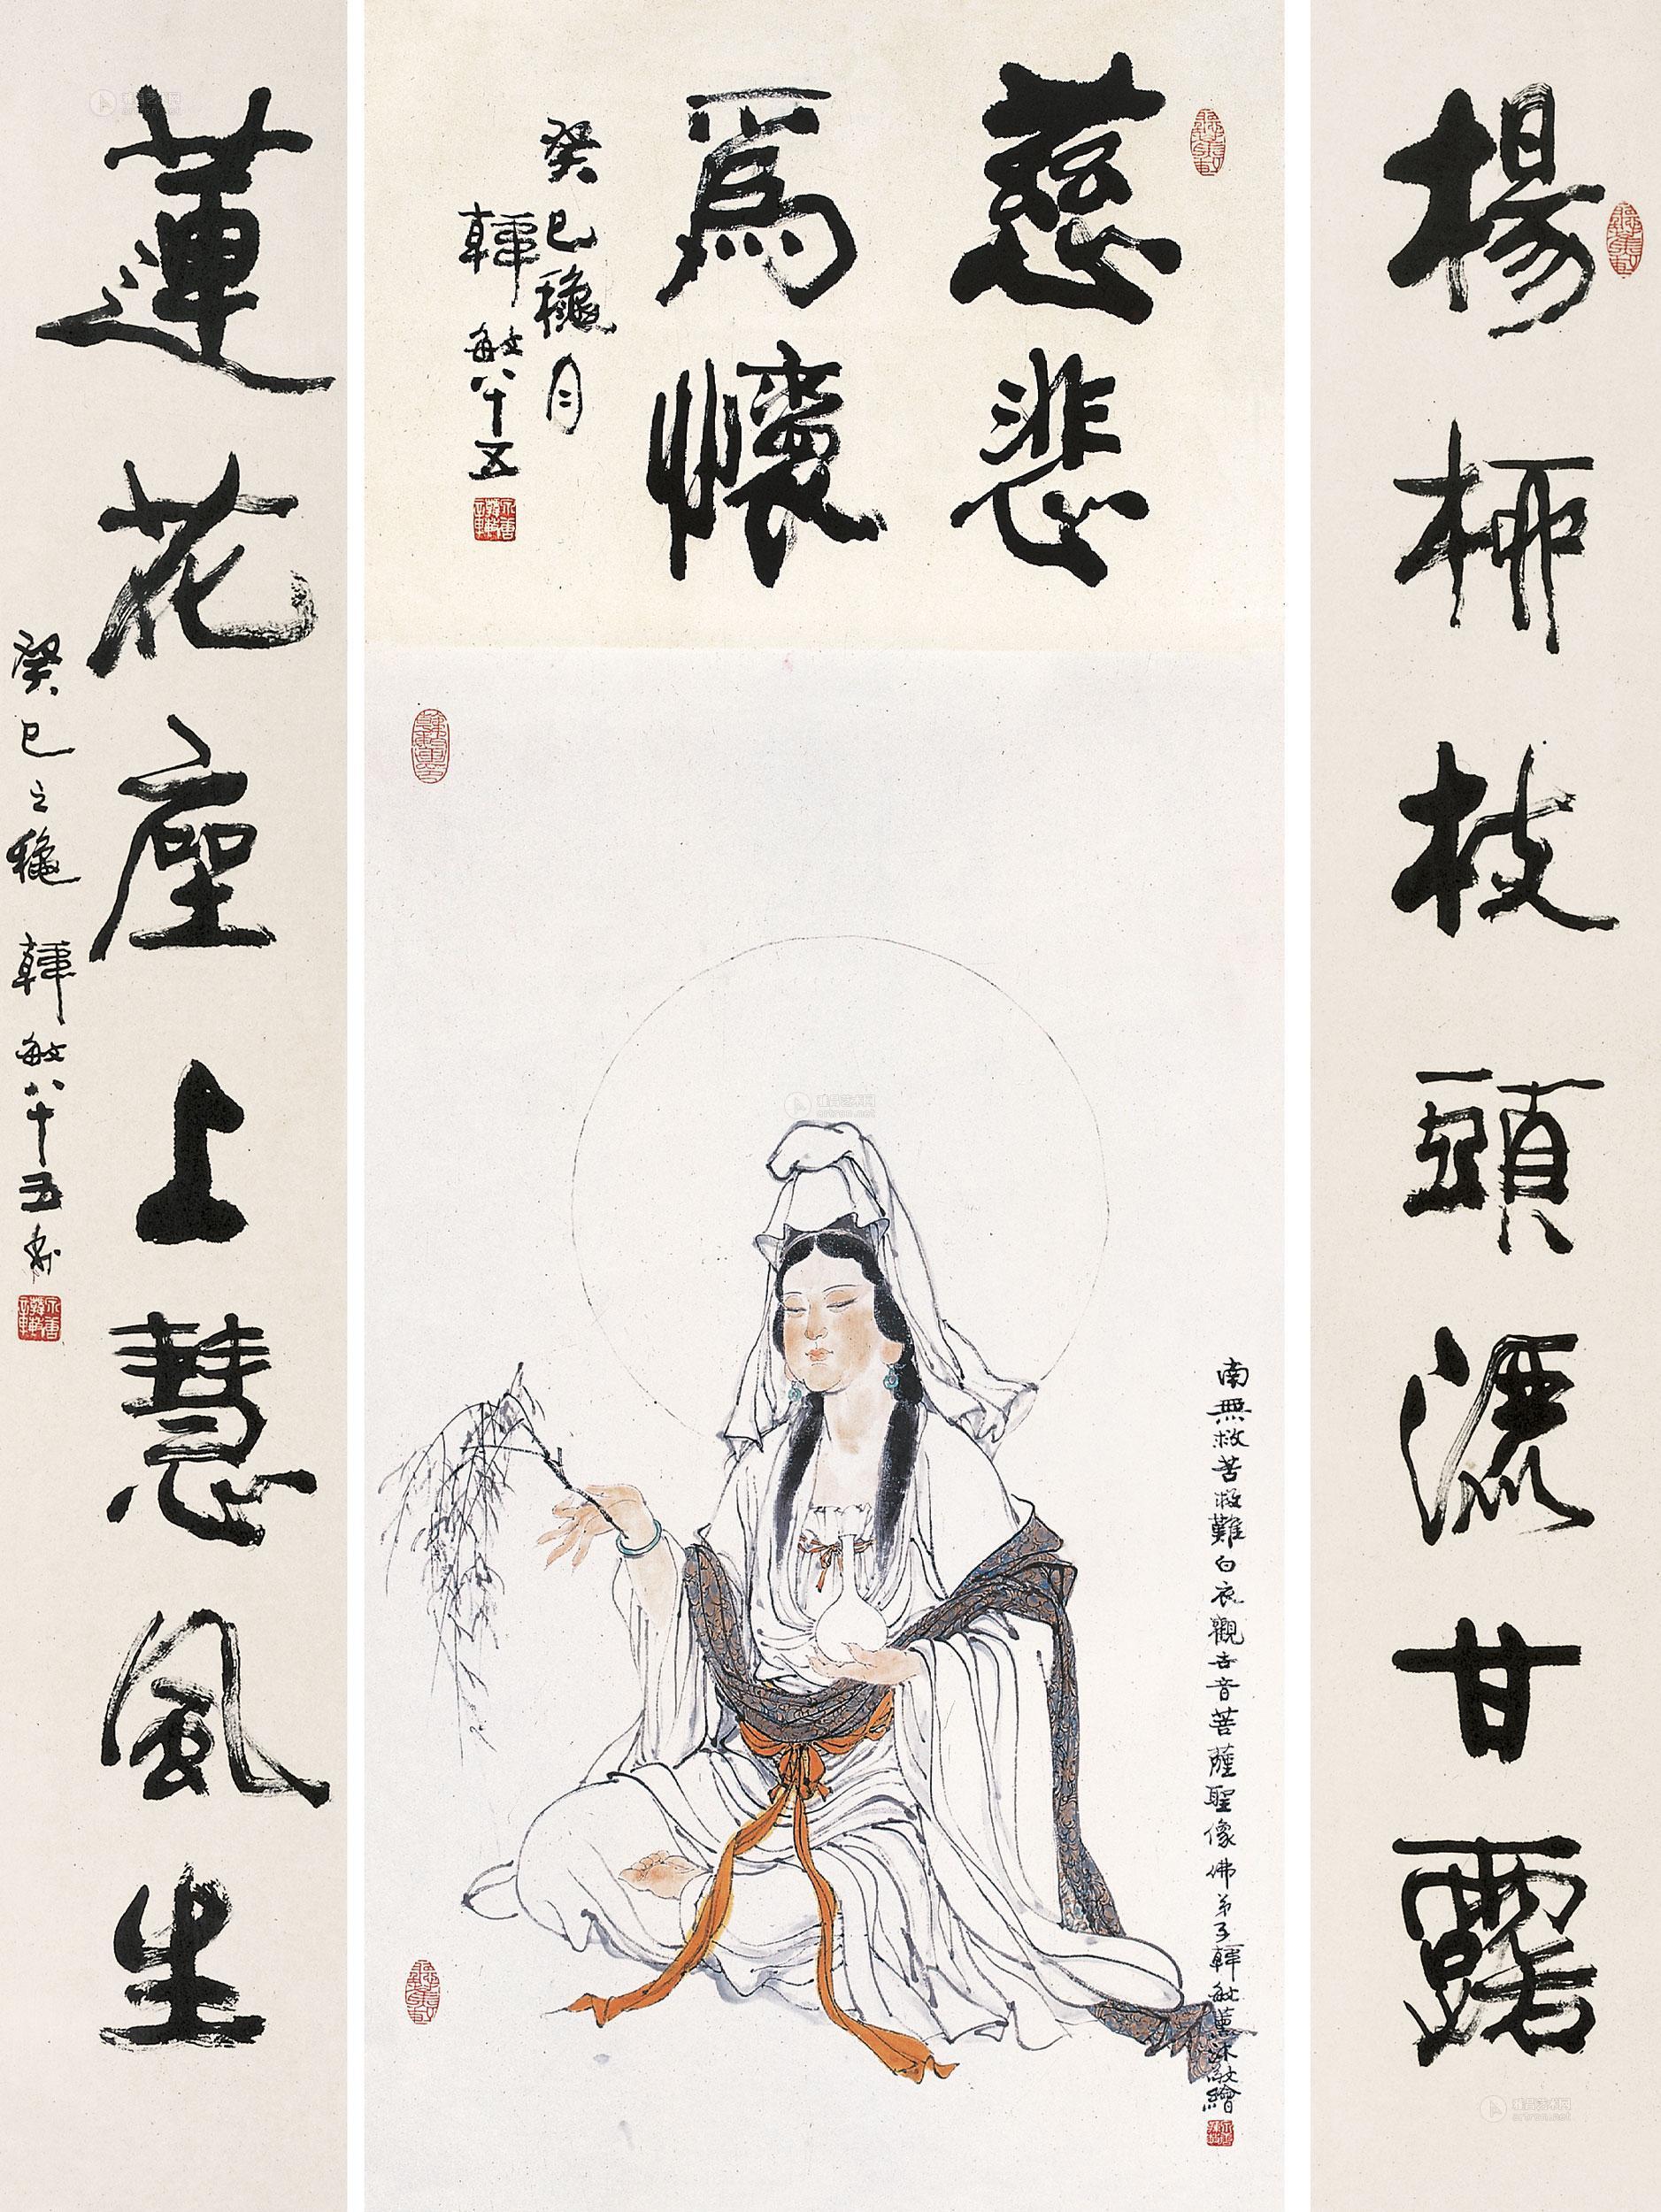 楊柳枝頭灑甘露
慈悲
爲懷
癸巳穐月
韓敏八十五
南無救苦救難白衣觀世音菩薩聖像佛弟子韓敏薰沐敬繪
蓮花座上慧風生
癸巳之穐韓敏八十五書